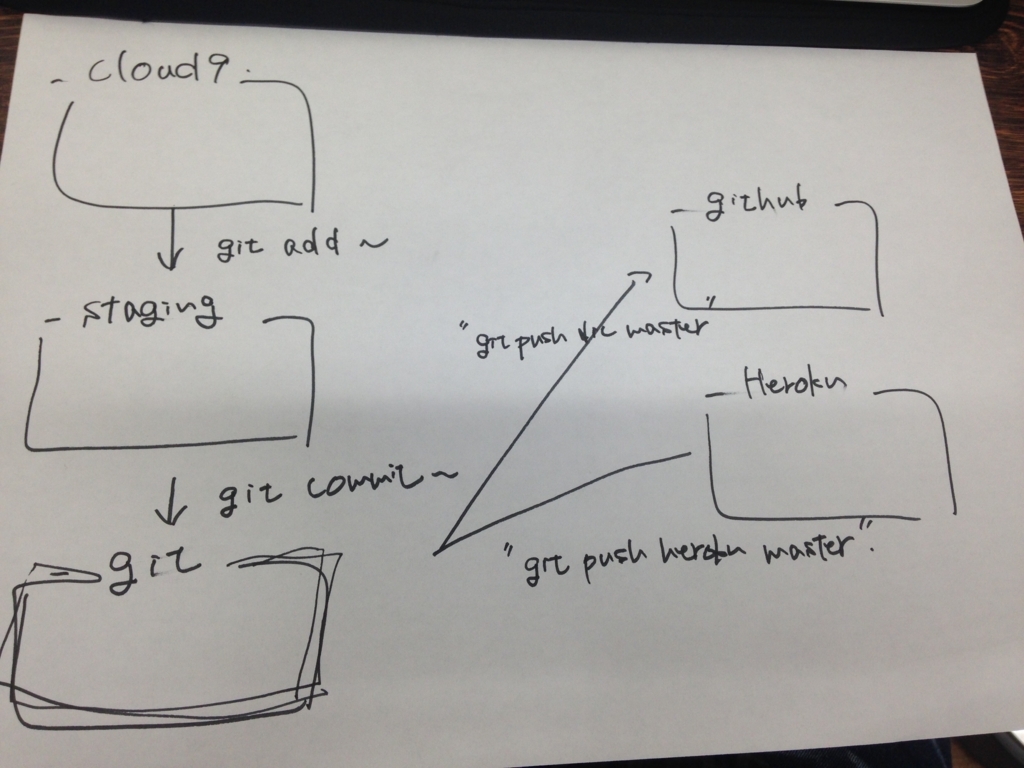 cloud9
git add ~
staging
git commit ~
git
github
"git push master"
Heroku
"git push heroku master".